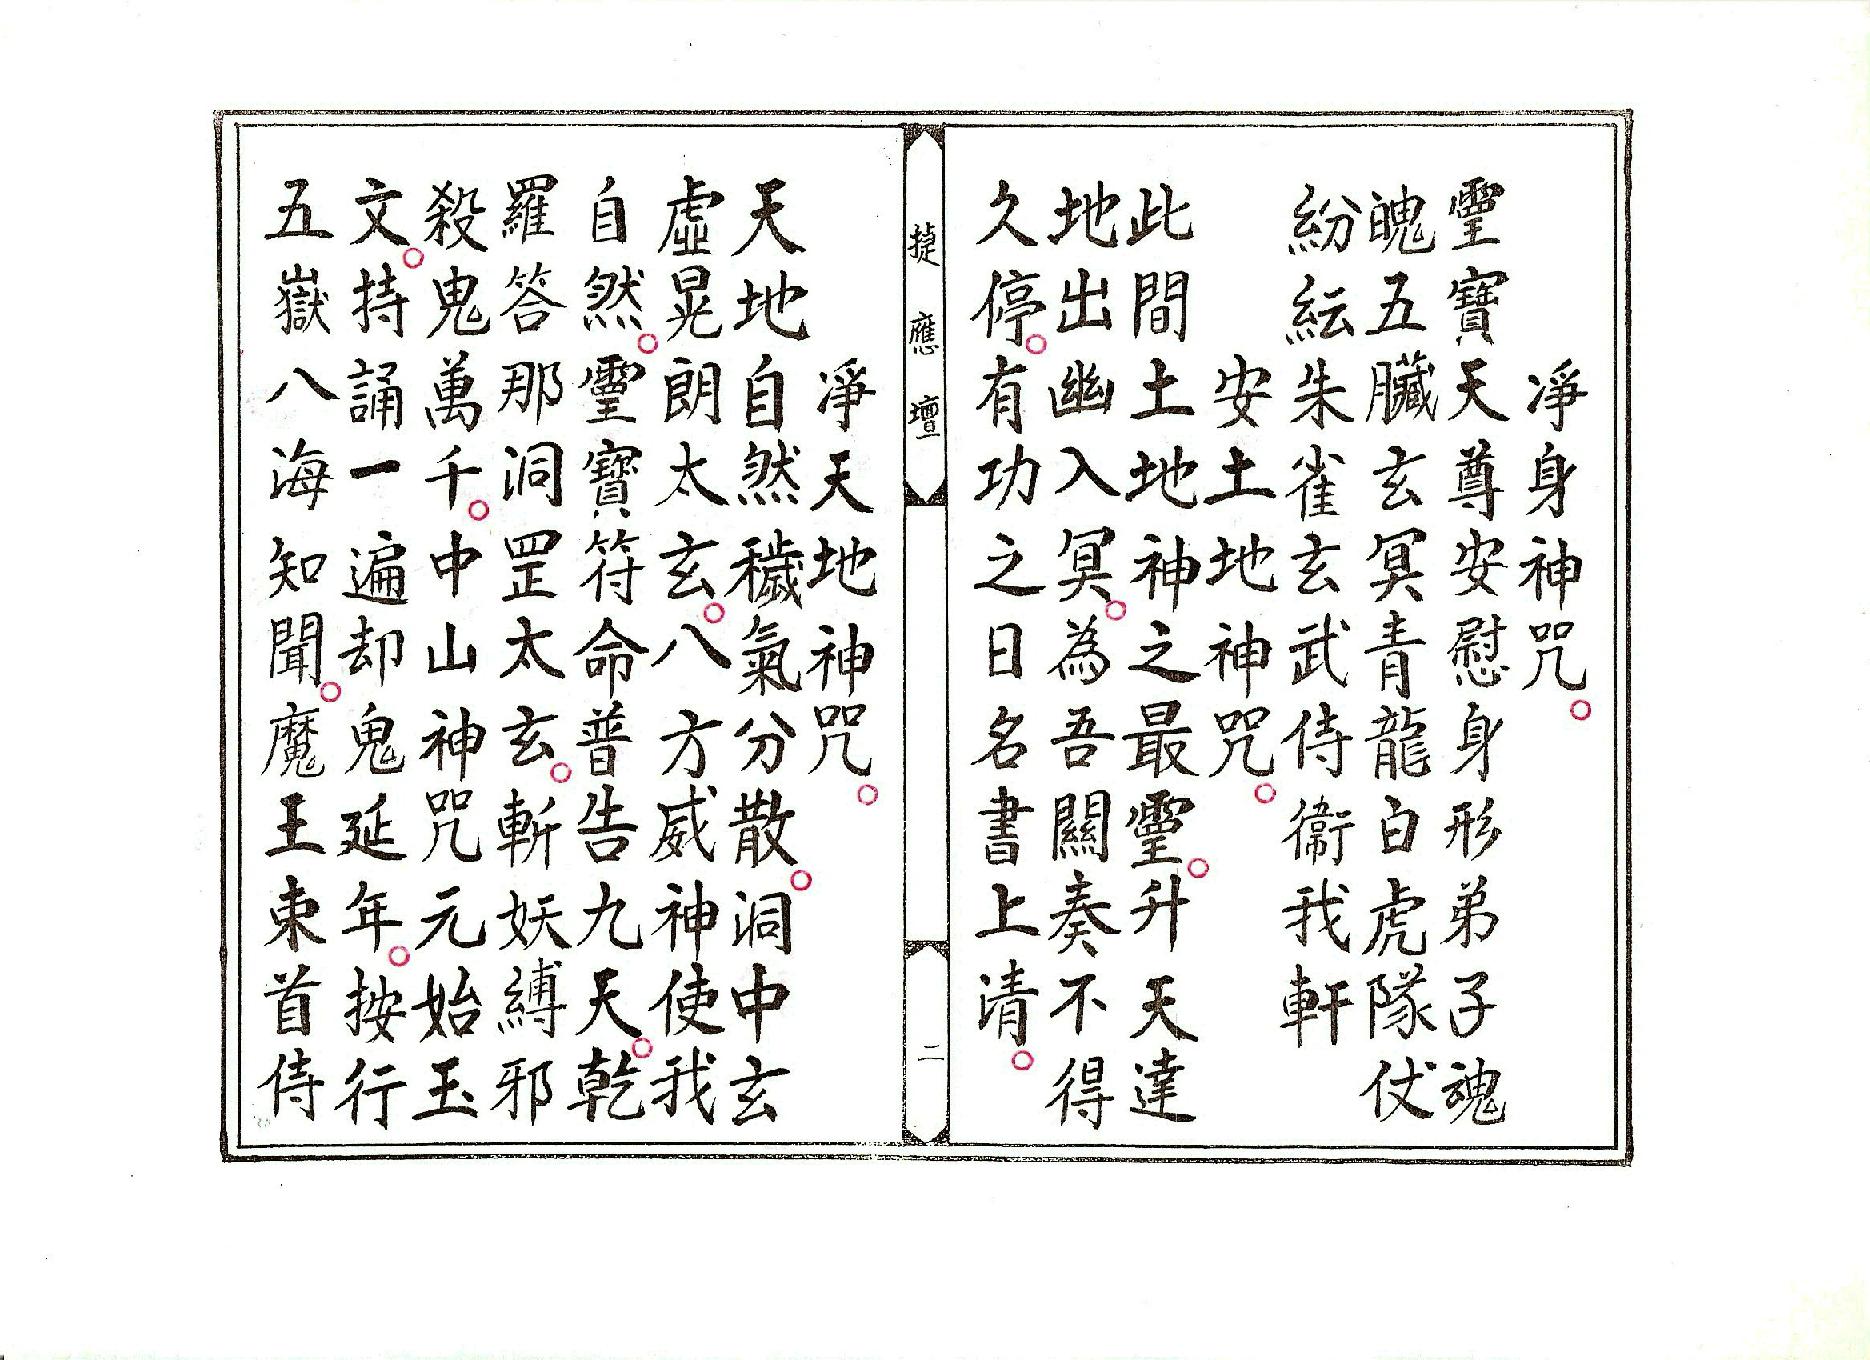 淨身神咒。
霊寶天尊安慰身形弟子魂
魄五臟玄冥青龍白虎隊仗
紛紜朱雀玄武侍衛我軒
安土地神咒。
此間土地神之最霊。升天達
地出幽入冥。為吾關奏不得
久停。有功之日名書上清。
捷應壇
二
淨天地神咒。
天地自然穢氣分散。洞中玄
虛晃朗太玄。八方威神使我
自然。霊寶符命普告九天。乾
羅答那洞罡太玄。斬妖縛邪
殺鬼萬千。中山神咒元始玉
文。持誦一遍却鬼延年。按行
五嶽八海知聞。魔王束首侍